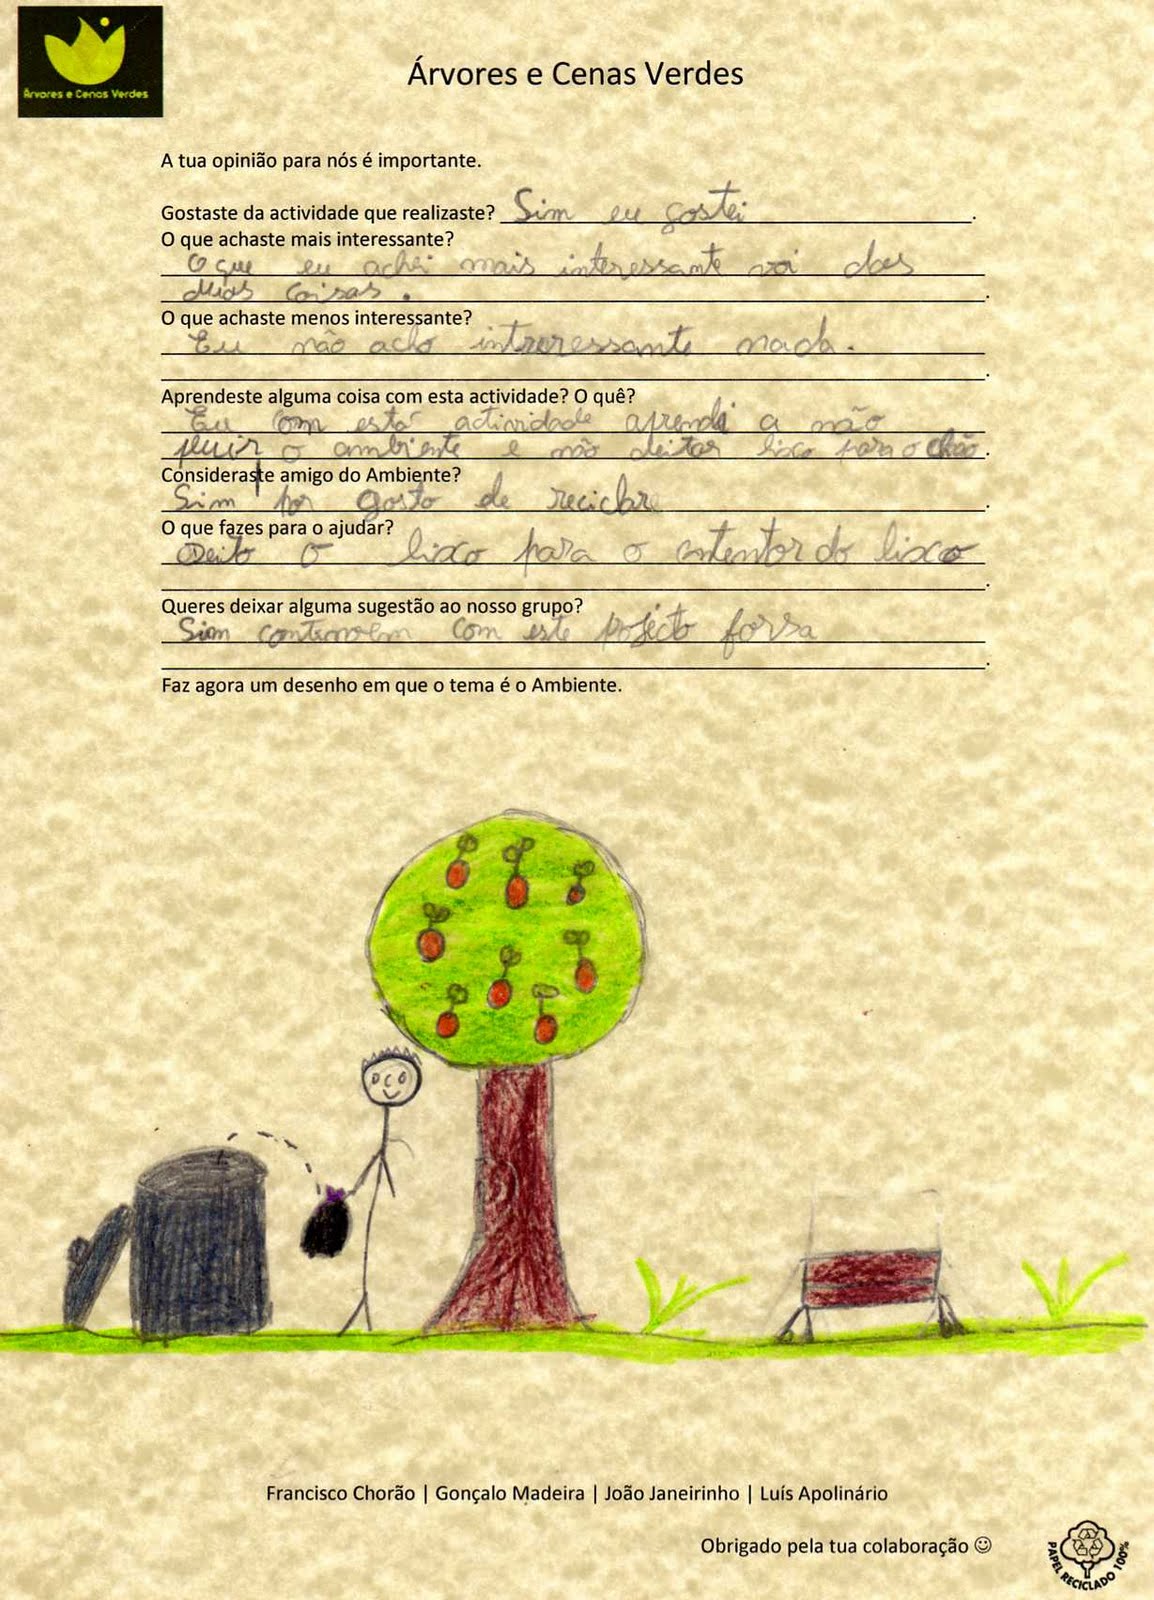 Árvores e Cenas Verdes
Árvores e Cenas Verdes
A tua opinião para nós é importante.
Gostaste da actividade que realizaste? Sim eu gostei.
O que achaste mais interessante?
O que eu achei mais interessante voi das
duas coisas.
O que achaste menos interessante?
Eu não acho intreressante nada.
Aprendeste alguma coisa com esta actividade? O quê?
Eu com está actividade aprendi a não
pluir o ambiente e não deitar lixo para o chão.
Consideraste amigo do Ambiente?
Sim por gosto de reciclare.
O que fazes para o ajudar?
Deito o lixo para o contentor do lixo
.
Queres deixar alguma sugestão ao nosso grupo?
Sim continuem com este projécto forsa
.
Faz agora um desenho em que o tema é o Ambiente.
Francisco Chorão | Gonçalo Madeira | João Janeirinho | Luís Apolinário
Obrigado pela tua colaboração ☺
PAPEL RECICLADO 100%